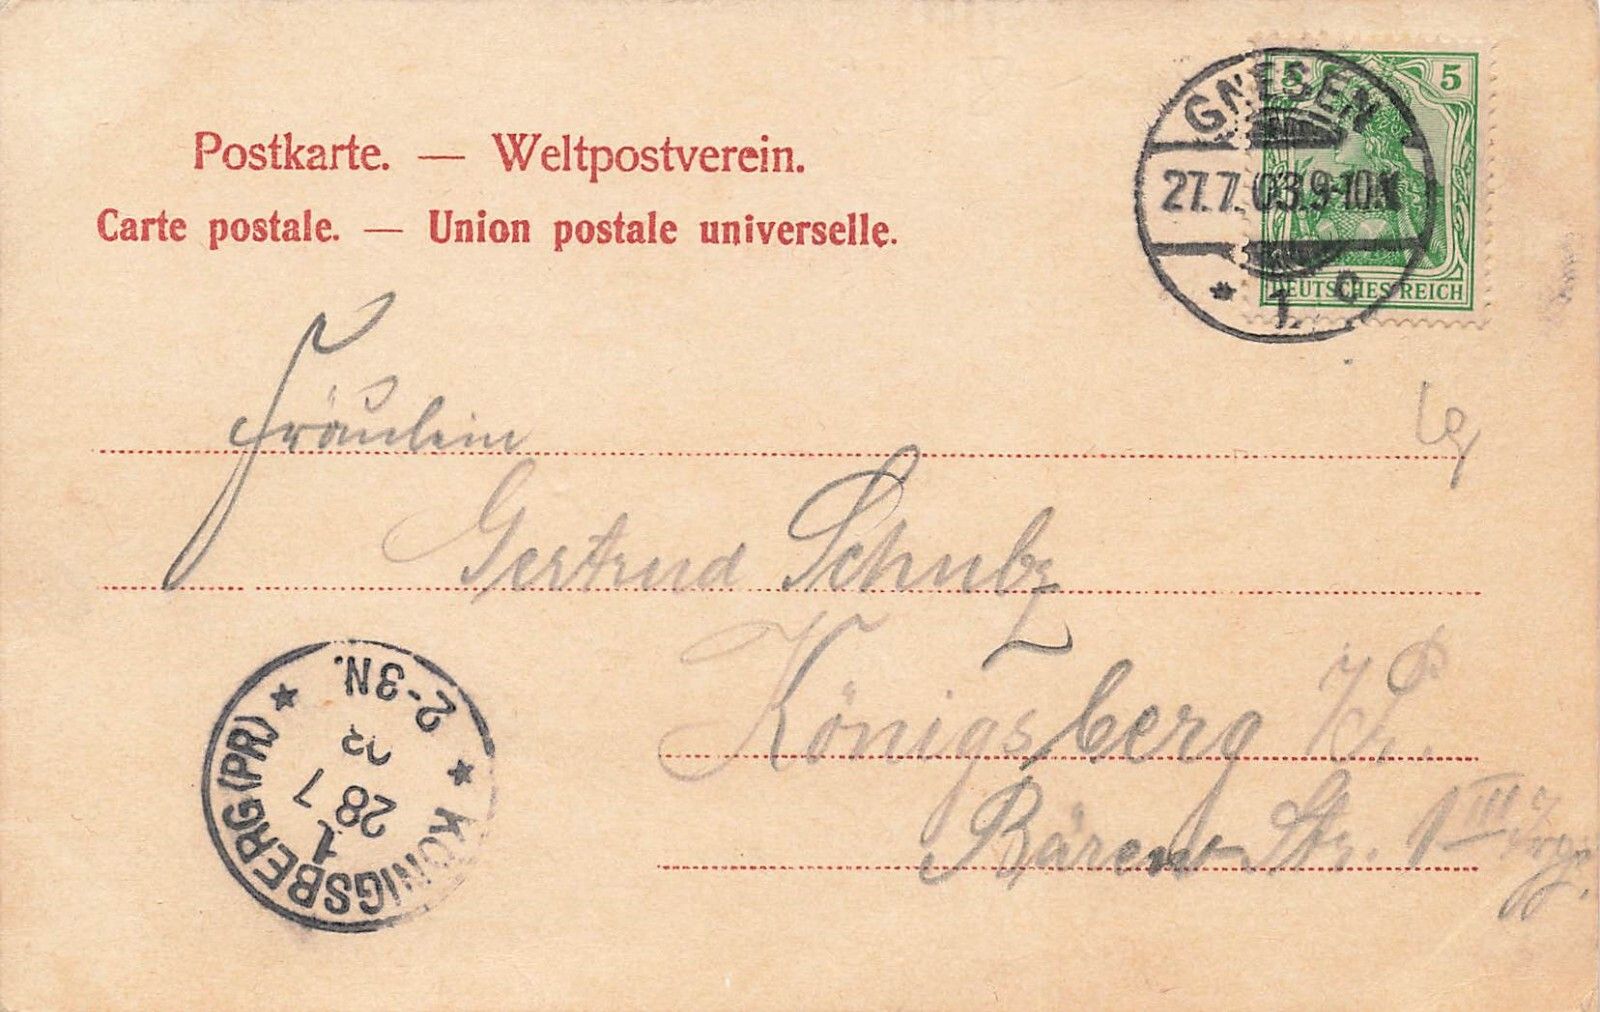 Postkarte. — Weltpostverein.
Carte postale. — Union postale universelle.
GNESEN
27.7.03.9-10.V
* 1 c
5 5
DEUTSCHES REICH
Fräulein
Gertrud Schulz
Königsberg i/Pr.
Bären Str. 1 III
KÖNIGSBERG (PR)
1
28 7
03
2-3N.